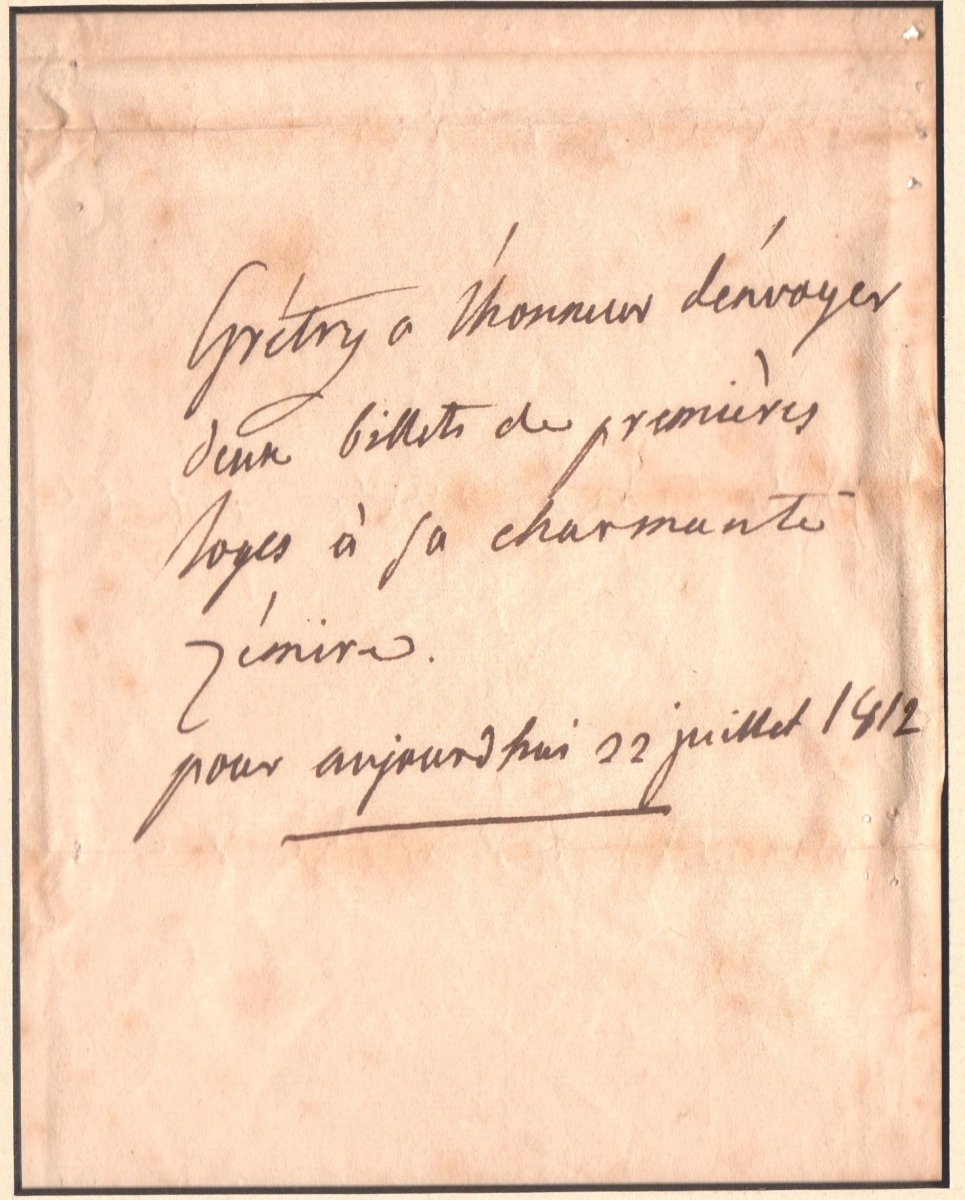 Grétry a l'honneur d'énvoyer
deux billets de premières
loges à sa charmante
zémire.
pour aujourd'hui 22 juillet 1812